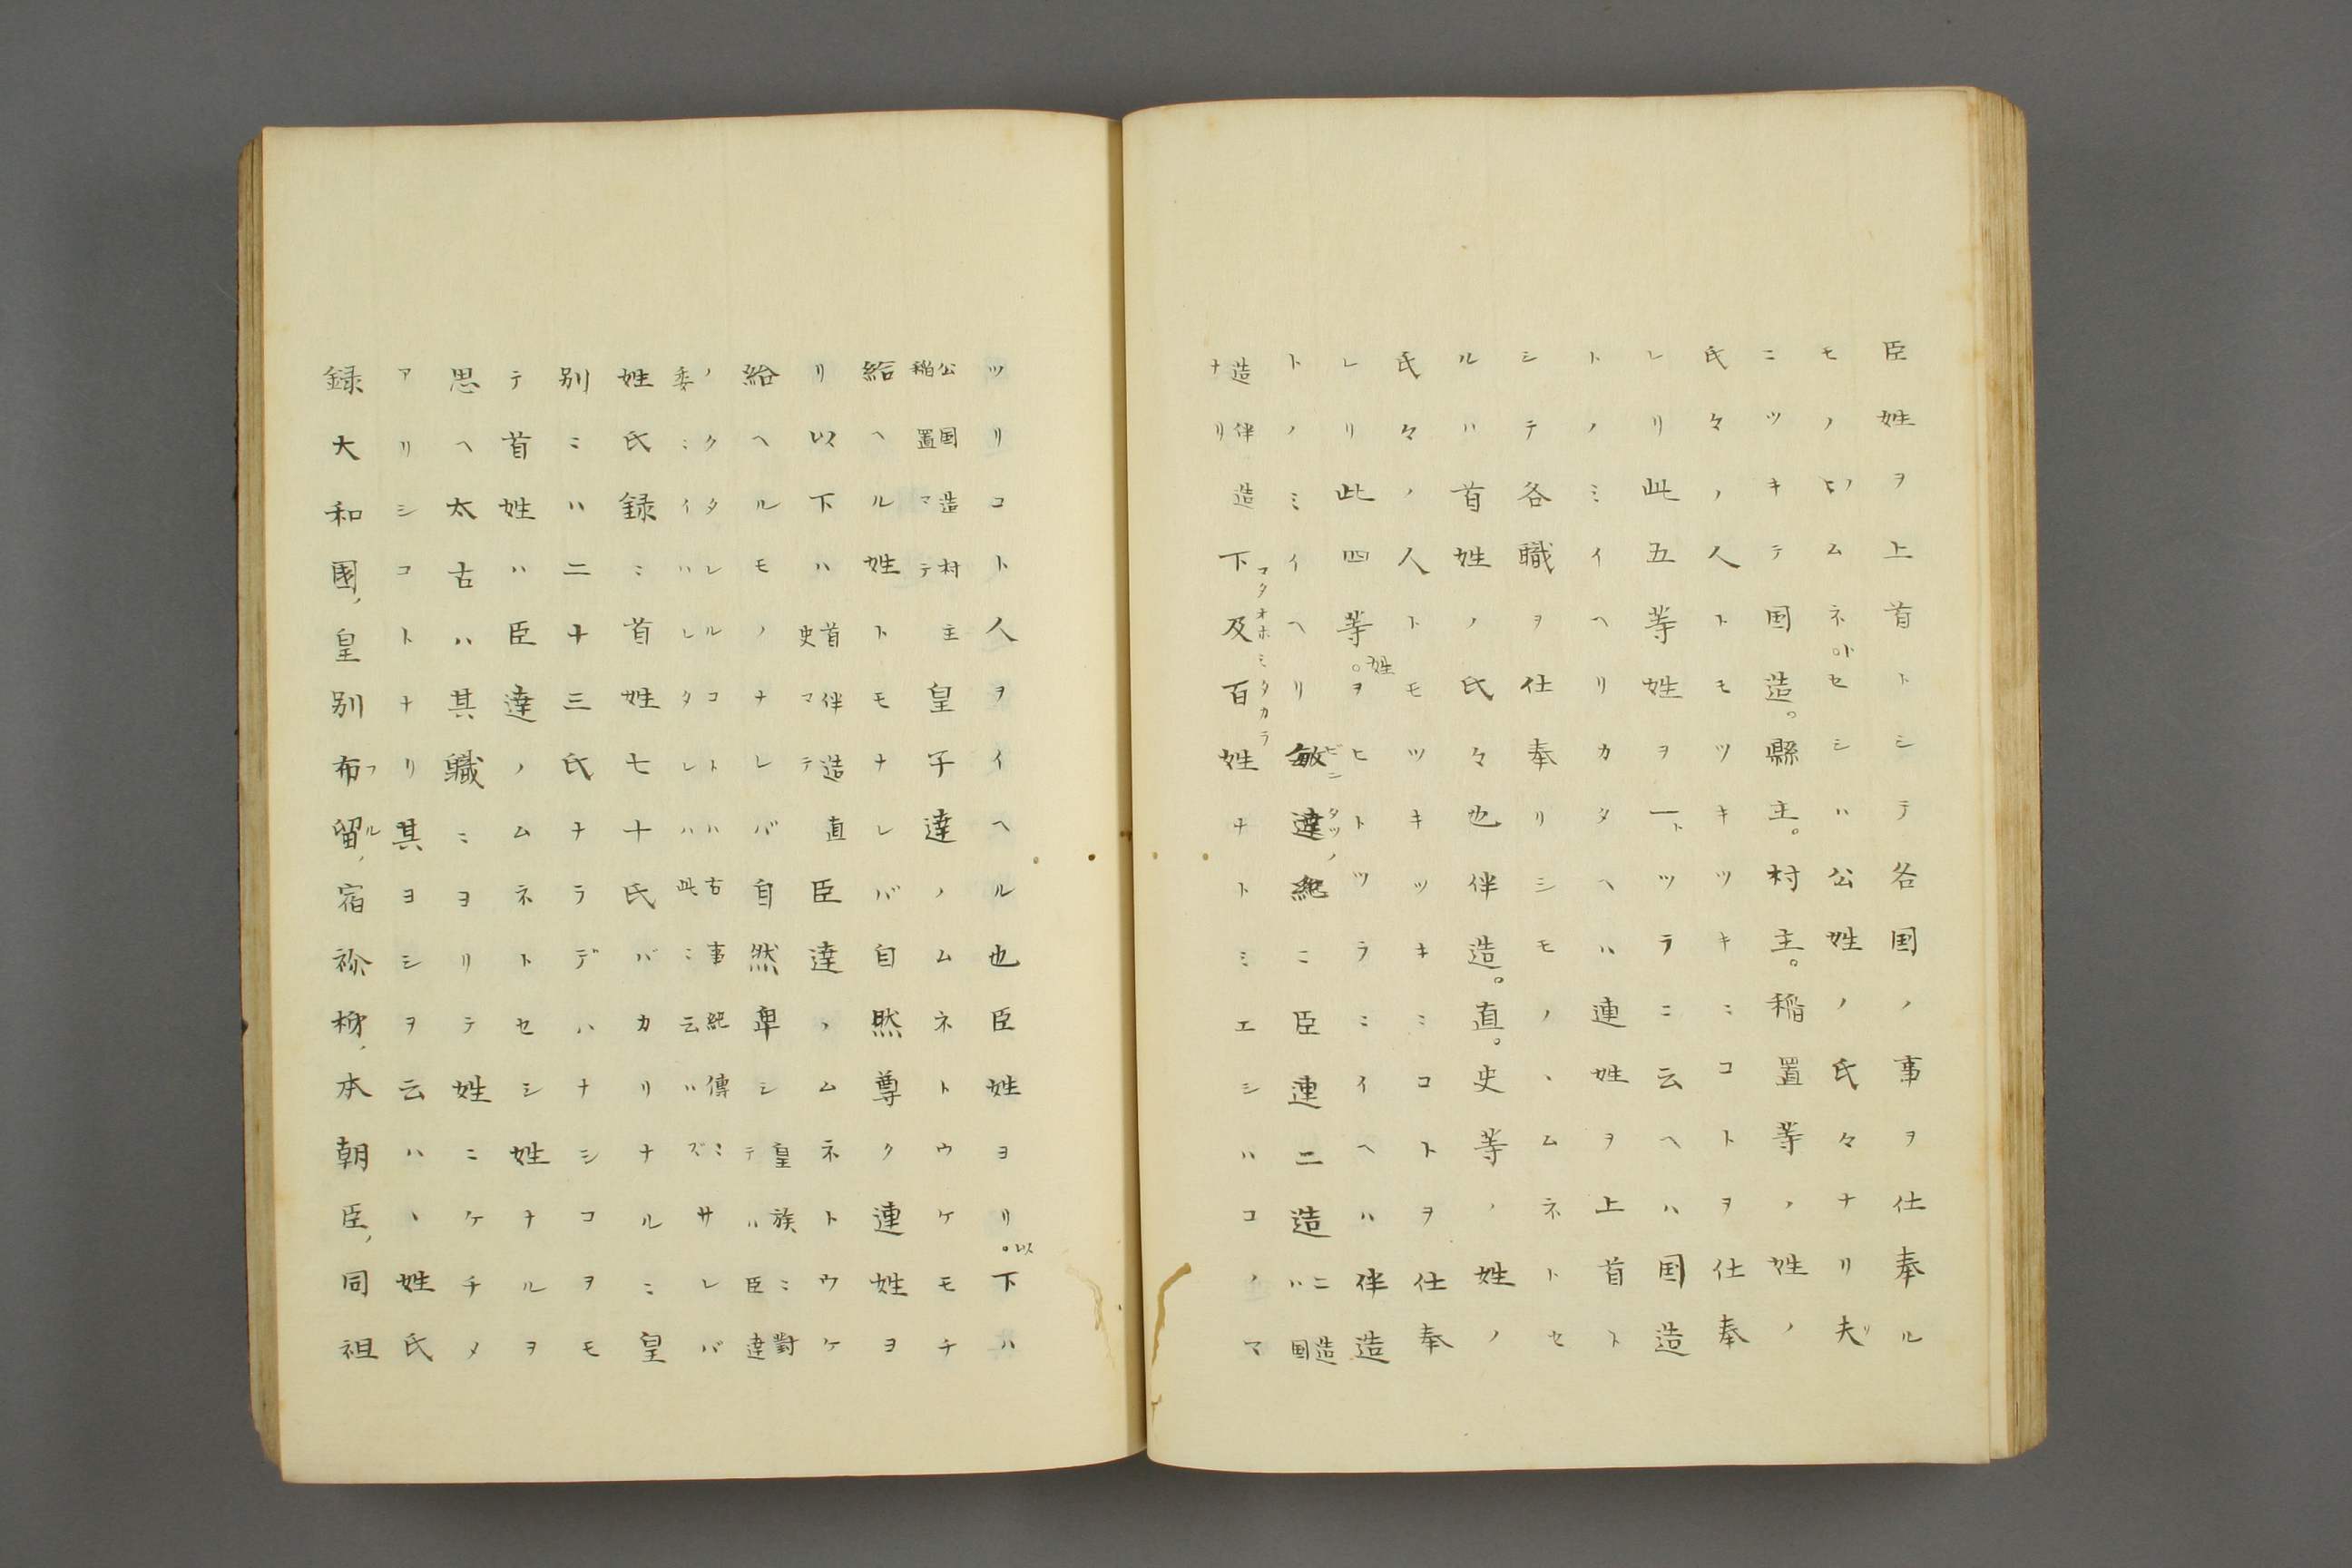 臣姓ヲ上首トシテ各国ノ事ヲ仕奉ル
モノヽムネ。トセシハ公姓ノ氏々ナリ夫リ
ニツキテ国造。縣主。村主。稲置等ノ姓ノ
氏々ノ人トモツキツキニコトヲ仕奉
レリ此五等姓ヲ一トツラニ云ヘハ国造
トノミイヘリカタヘハ連姓ヲ上首ト
シテ各職ヲ仕奉リシモノヽムネトセ
ルハ首姓ノ氏々也伴造。直。史等ノ姓ノ
氏々ノ人トモツキツキニコトヲ仕奉
レリ此四等。姓ヲヒトツラニイヘハ伴造
トノミイヘリ敏達紀ニ臣連二造二造ハ国
造伴造ナリ下及百姓ナトミエシハコノマ
ツリコト人ヲイヘル也臣姓ヨリ。以下ハ
公国造村主稲置マテ皇子達ノムネトウケモチ
給ヘル姓トモナレバ自然尊ク連姓ヲ
リ以下ハ首伴造直史マテ臣達ノムネトウケ
給ヘルモノナレバ自然卑シ皇族ニ對テハ臣達
ノクタレルコトハ古事紀傳委ニイハレタレハ此ニ云ハズミサレバ
姓氏録ニ首姓七十氏バカリナルニ皇
別ニハ二十三氏ナラデハナシコヲモ
テ首姓ハ臣達ノムネトセシ姓ナルヲ
思ヘ太古ハ其職ニヨリテ姓ニケチメ
アリシコトナリ其ヨシヲ云ハヽ姓氏
録大和国，皇別布留，宿祢柿，本朝臣，同祖